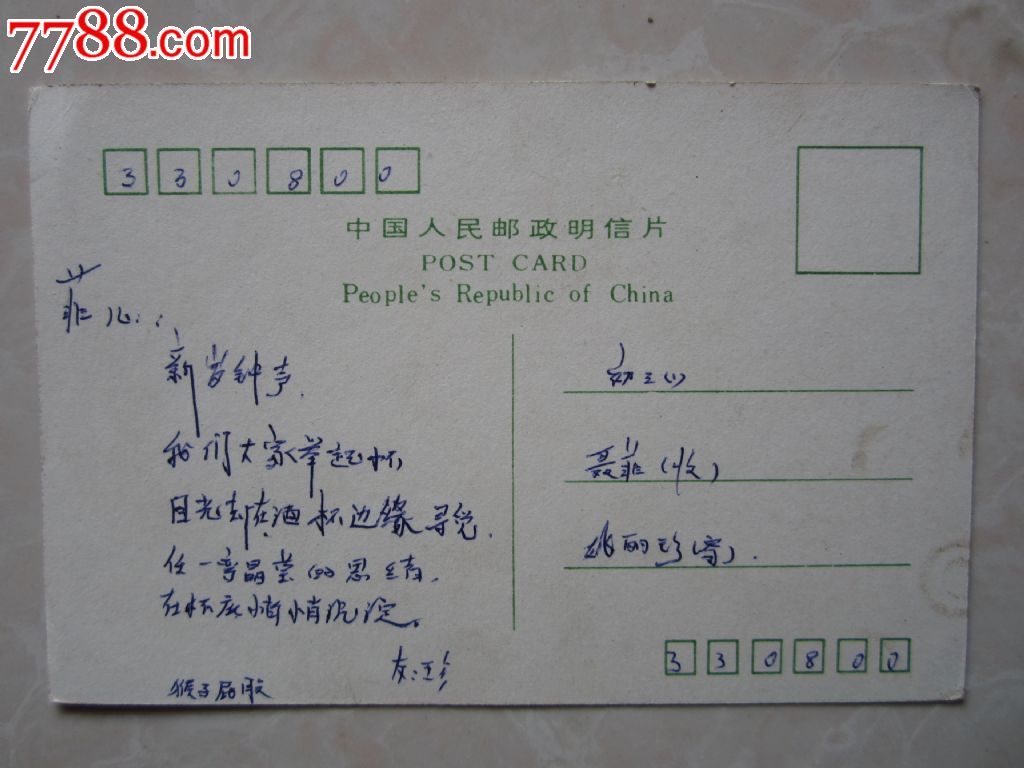 7788.com
330800
中国人民邮政明信片
POST CARD
People's Republic of China
菲儿:
新岁钟声.
我们大家举起杯,
目光却在酒杯边缘寻觅.
任一弯晶莹的思绪,
在杯底悄悄沉淀。
友:
猴子屁股
幼三(1)
聂菲(收)
姚丽珍寄
330800